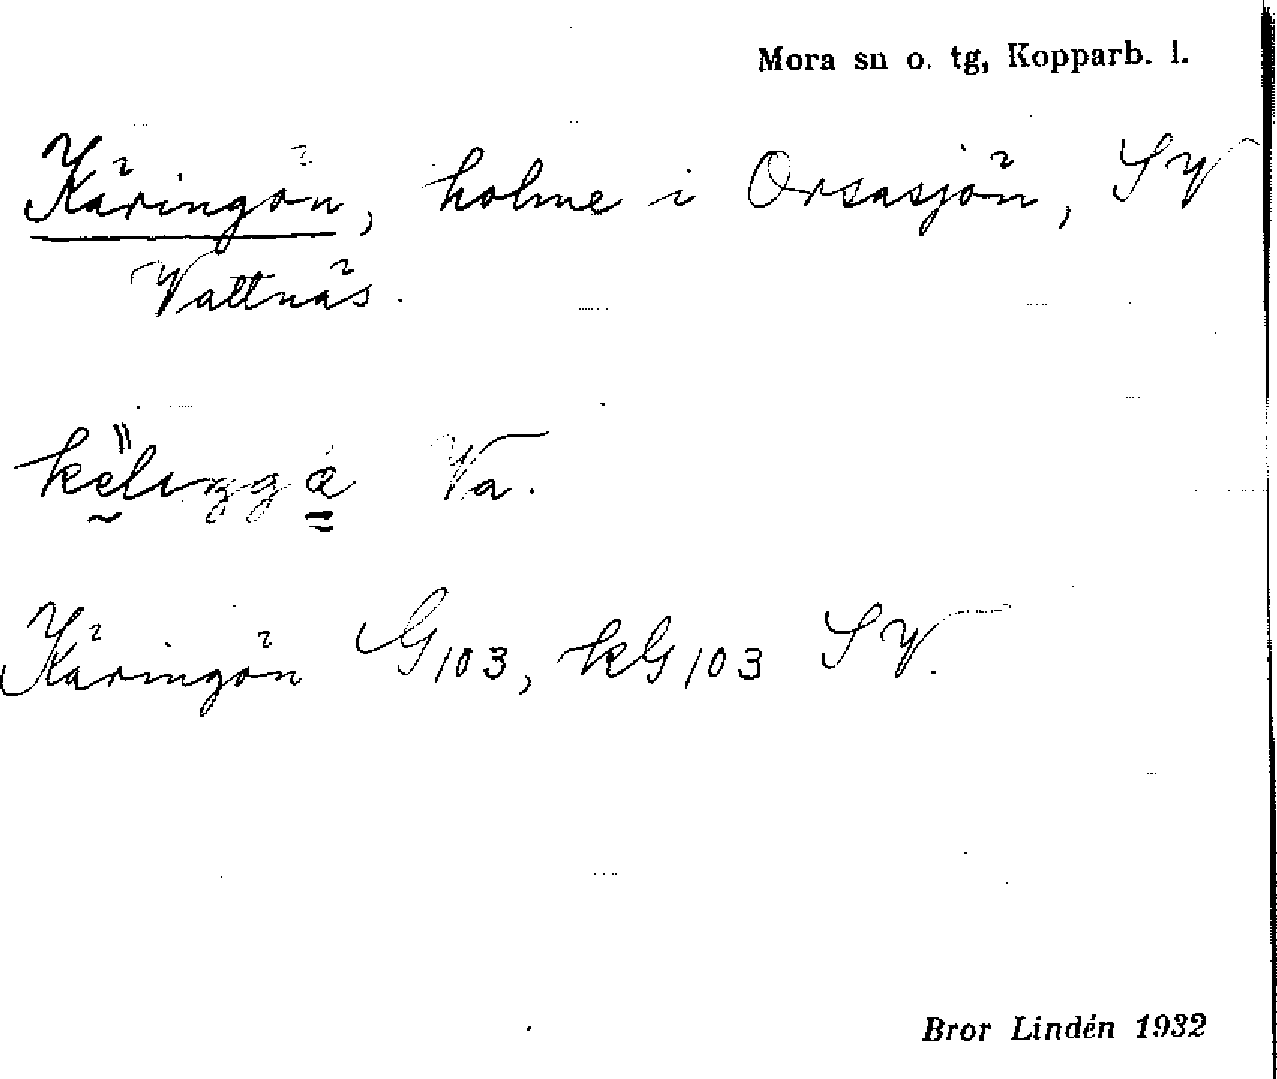 Mora sn o. tg, Kopparb. l.
Käringön, holme i Orsasjön, SV
Vattnäs.
Va.
Käringön G103, kG103 SV.
Bror Lindén 1932